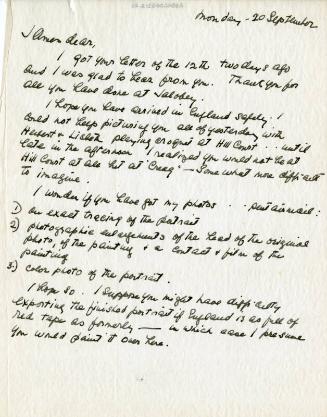 Monday - 20 September
dear,
I got your letter of the 12th two days ago
and I was glad to hear from you. Thank you for
all you have done at
I hope you have arrived in England safely. I
could not help picturing you all of yesterday with
Herbert & Lilith playing croquet at Hill Court .. until
late in the afternoon I realized you would not be at
Hill Court at all but at "Craig" - Somewhat more difficult
to imagine.
I wonder if you have got my photos .. sent airmail:
1) an exact tracing of the portrait
2) photographic enlargements of the head of the original
photo, of the painting & a contact & film of the
painting
3) color photo of the portrait.
I hope so.. I suppose you might have difficulty
exporting the finished portrait if England is as full of
red tape as formerly — in which case I presume
you would paint it over here.